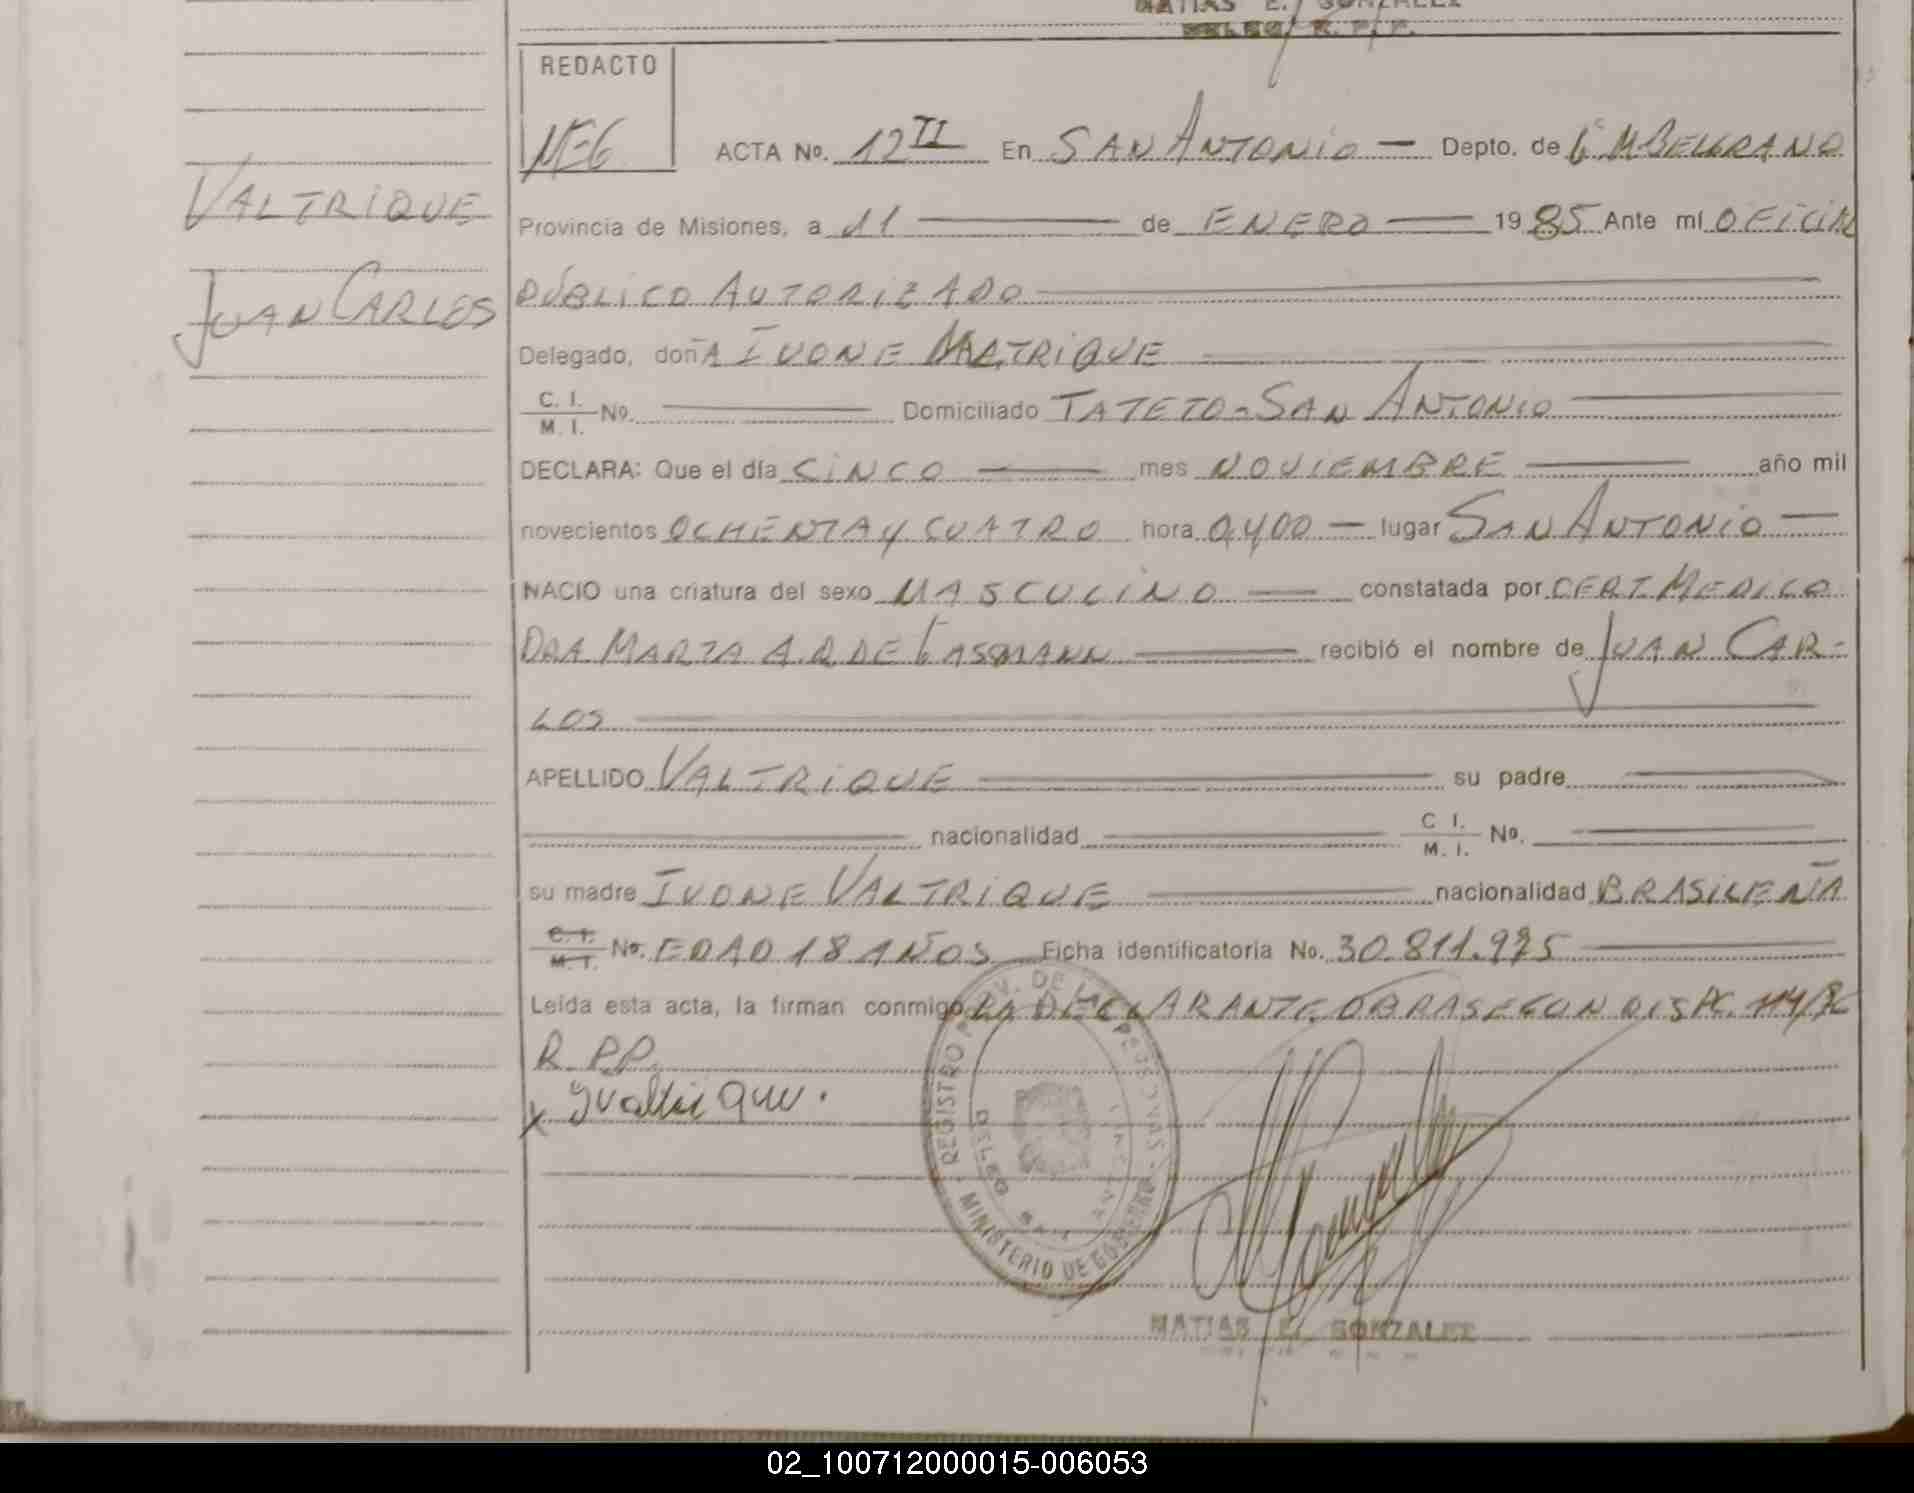 MATIAS E. GONZALEZ
DELEG. R. P. P.
REDACTO
ACTA No. 12 TI En SAN ANTONIO — Depto. de G M BELGRANO
Provincia de Misiones, a 11 — de ENERO — 1985 Ante mí OFICIAL
PÚBLICO AUTORIZADO
VALTRIQUE
JUAN CARLOS
Delegado, doñA IVONE VALTRIQUE
C. I. / M. I. No. — Domiciliado TATETO - SAN ANTONIO
DECLARA: Que el día CINCO — mes NOVIEMBRE — año mil
novecientos OCHENTA Y CUATRO hora 0,400 — lugar SAN ANTONIO —
NACIO una criatura del sexo MASCULINO — constatada por CERT MEDICO
DRA MARTA A.R. DE GASSMANN — recibió el nombre de JUAN CAR-
LOS
APELLIDO VALTRIQUE — su padre —
— nacionalidad — C I. / M. I. No. —
su madre IVONE VALTRIQUE — nacionalidad BRASILEÑA
C. I. / M. I. No. EDAD 18 AÑOS Ficha identificatoria No. 30.811.975
Leída esta acta, la firman conmigo LA DECLARANTE, OBRA SEGUN DISP.
R. P.P.
x Ivaltrique.
REGISTRO PROV. DE LAS PERSONAS
DELEG. SAN ANTONIO
MINISTERIO DE GOBIERNO
MATIAS E. GONZALEZ
02_100712000015-006053